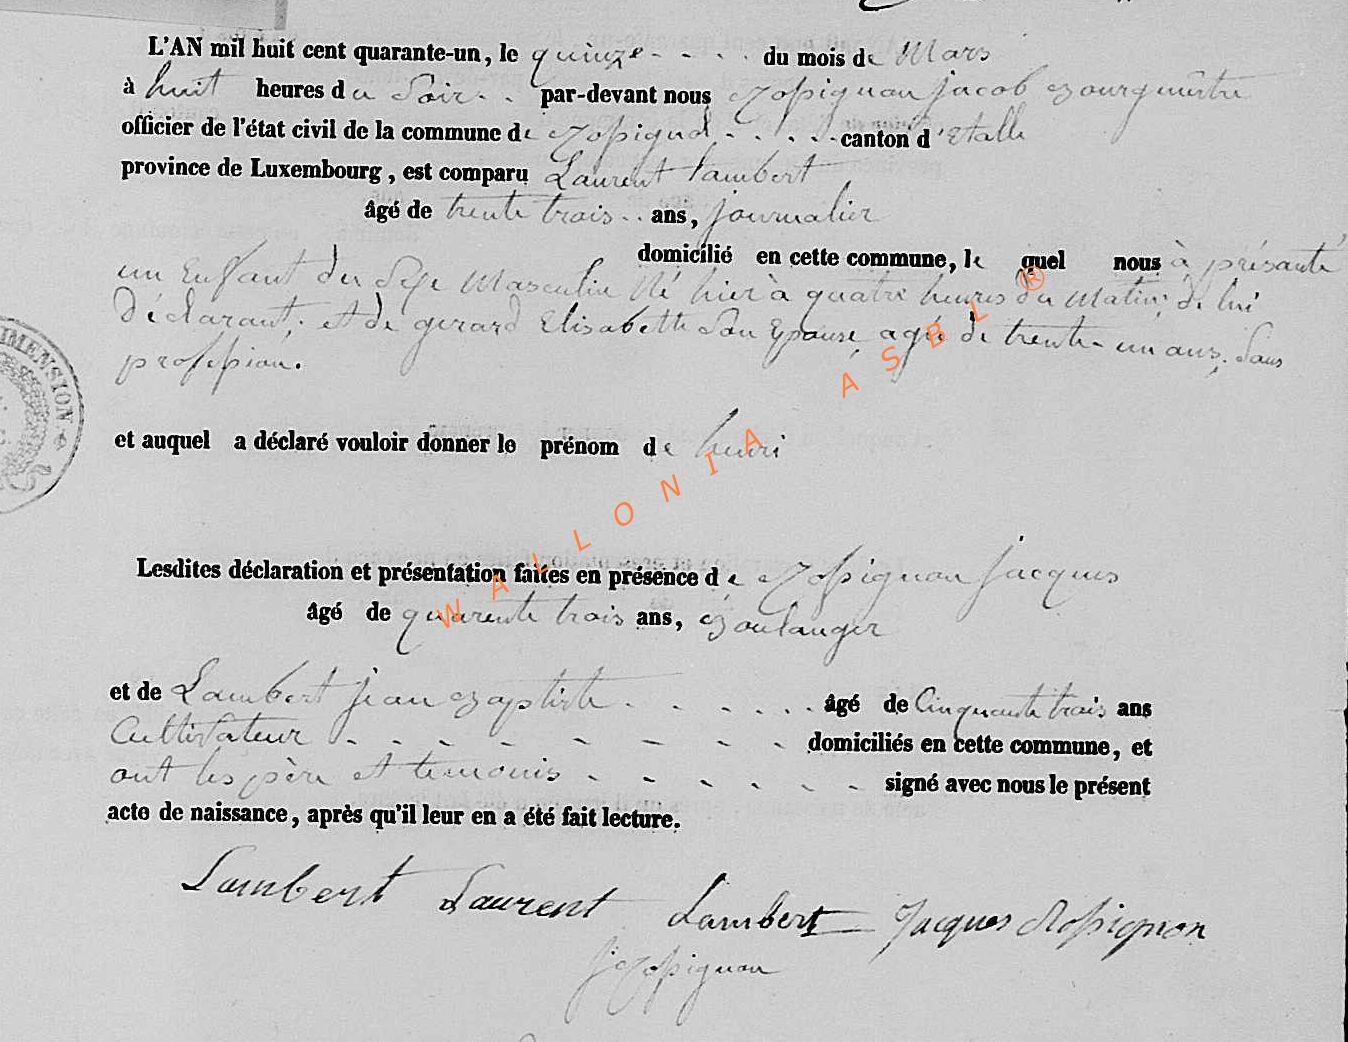 L'AN mil huit cent quarante-un, le quinze - - - - du mois de Mars
à huit heures du Soir - - par-devant nous Rossignon jacob Bourgmêtre
officier de l'état civil de la commune de Rossignol - - - - - canton d'Etalle
province de Luxembourg, est comparu Laurent lambert
âgé de trente trois - - ans, journalier
domicilié en cette commune, le quel nous à présanté
un Enfant du Sexe Masculin Né hier à quatre heures du Matin, de lui
Déclarant, et de gerard Elisabette Son Epouse, agée de trente-un ans, Sans
profession.
et auquel a déclaré vouloir donner le prénom de henri
Lesdites déclaration et présentation faites en présence de Rossignon jacques
âgé de quarente trois ans, Boulanger
et de Lambert jean Baptiste - - - - - - âgé de Cinquante trois ans
Cultivateur - - - - - - - - domiciliés en cette commune, et
ont les père et temouis - - - - - - signé avec nous le présent
acte de naissance, après qu'il leur en a été fait lecture.
Lambert Laurent Lambert Jacques Rossignon
j Rossignon
IMENSION
WALLONIA ASBL ®